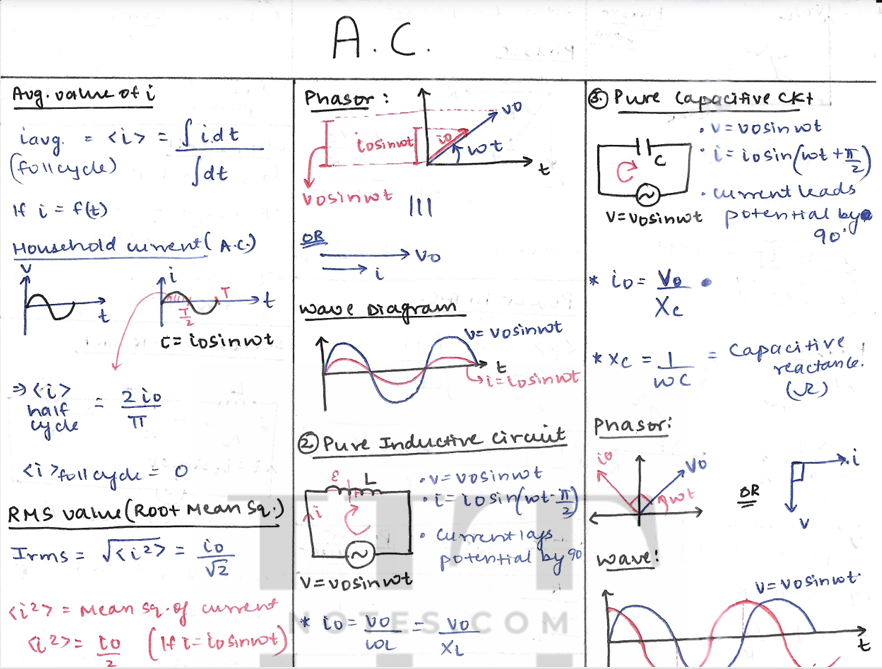 A.C.
Avg. value of i
iavg. = <i> = ∫i.dt / ∫dt
(full cycle)
If i = f(t)
Household current (A.C.)
V
t
i
T/2
T
t
C = i0sinwt
⇒ <i> half cycle = 2i0 / π
<i> full cycle = 0
RMS value (Root Mean Sq.)
Irms = √<i²> = i0 / √2
<i²> = Mean sq. of current
<i²> = i0 / 2 (If i = i0sinwt)
Phasor :
V0
i0sinwt
i0
wt
t
V0sinwt
|||
OR
V0
i
Wave Diagram
V = V0sinwt
t
i = i0sinwt
② Pure Inductive Circuit
ε
L
i
V = V0sinwt
• V = V0sinwt
• i = i0sin(wt - π/2)
• current lags potential by 90
* i0 = V0 / wL = V0 / XL
③. Pure Capacitive Ckt
C
V = V0sinwt
• V = V0sinwt
• i = i0sin(wt + π/2)
• current leads
potential by
90°
* i0 = V0 / Xc
* Xc = 1 / wC = Capacitive
reactance.
(Ω)
Phasor:
i0
V0
wt
OR
i
V
Wave:
V = V0sinwt.
t
NOTES.COM